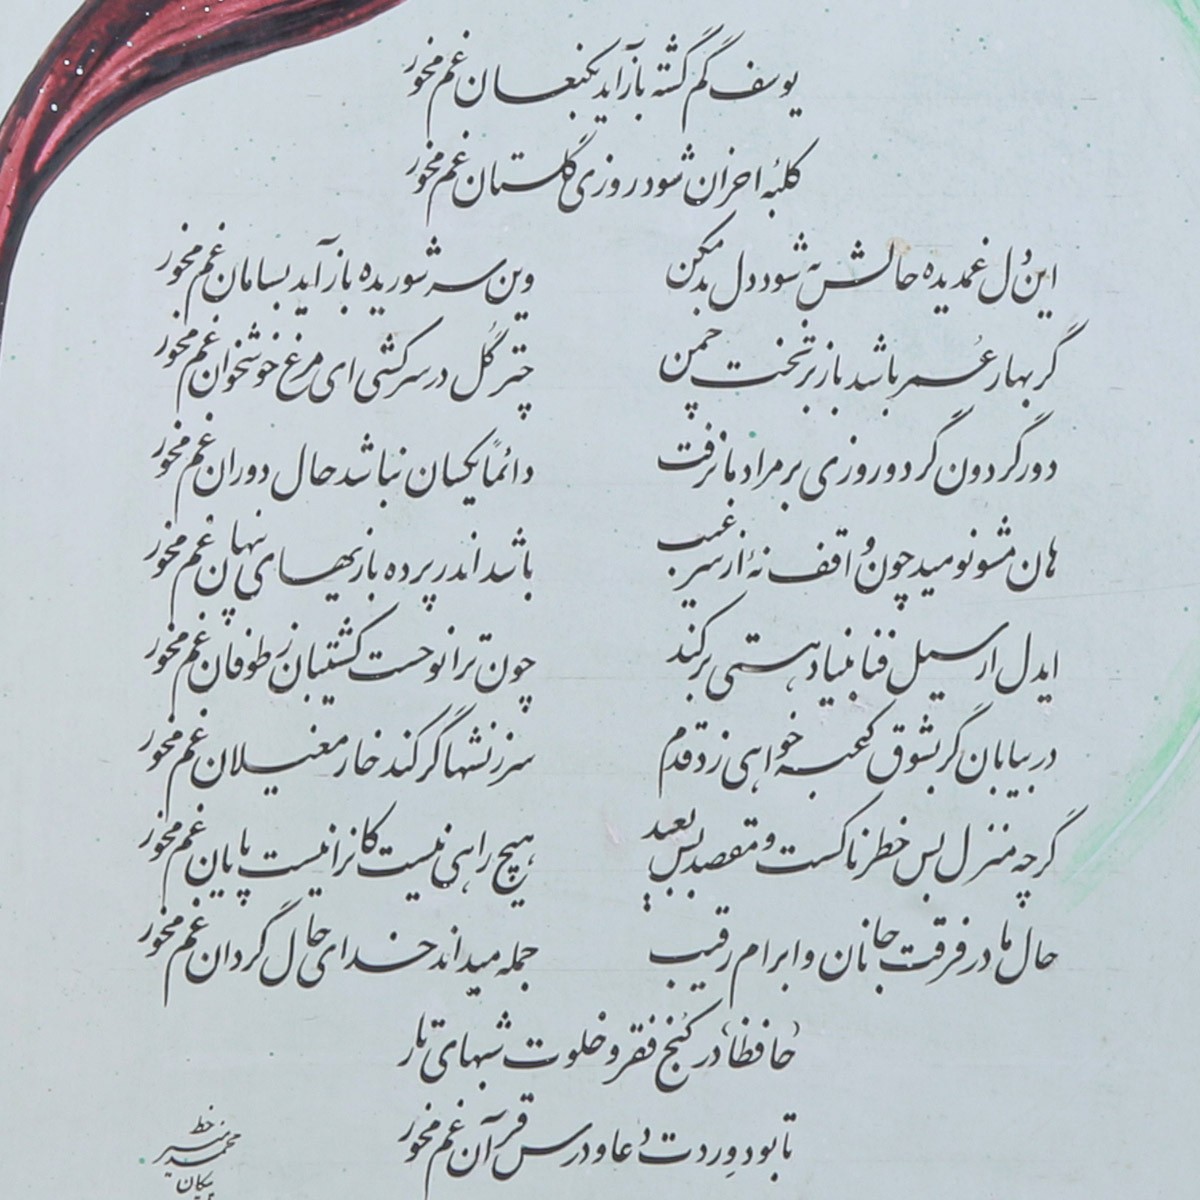 یوسف گم گشته بازآید بکنعان غم مخور
کلبهٔ احزان شود روزی گلستان غم مخور
این دل غمدیده حالش به شود دل بد مکن
وین سر شوریده باز آید بسامان غم مخور
گر بهار عُمر باشد باز بر تخت چمن
چتر گُل در سر کشی ای مرغ خوشخوان غم مخور
دور گردون گر دو روزی بر مراد ما نرفت
دائماً یکسان نباشد حال دوران غم مخور
هان مشو نومید چون واقف نهٔ از سر غیب
باشد اندر پرده بازیهای پنهان غم مخور
ایدل ار سیل فنا بنیاد هستی برکند
چون ترا نوحست کشتیبان ز طوفان غم مخور
در بیابان گر بشوق کعبه خواهی زد قدم
سرزنشها گر کند خار مغیلان غم مخور
گرچه منزل بس خطرناکست و مقصد بس بعید
هیچ راهی نیست کانرا نیست پایان غم مخور
حال ما در فرقت جانان و ابرام رقیب
جمله میداند خدای حال گردان غم مخور
«حافظا» در کُنج فقر و خلوت شبهای تار
تا بود وِردت دعا و درس قرآن غم مخور
خط